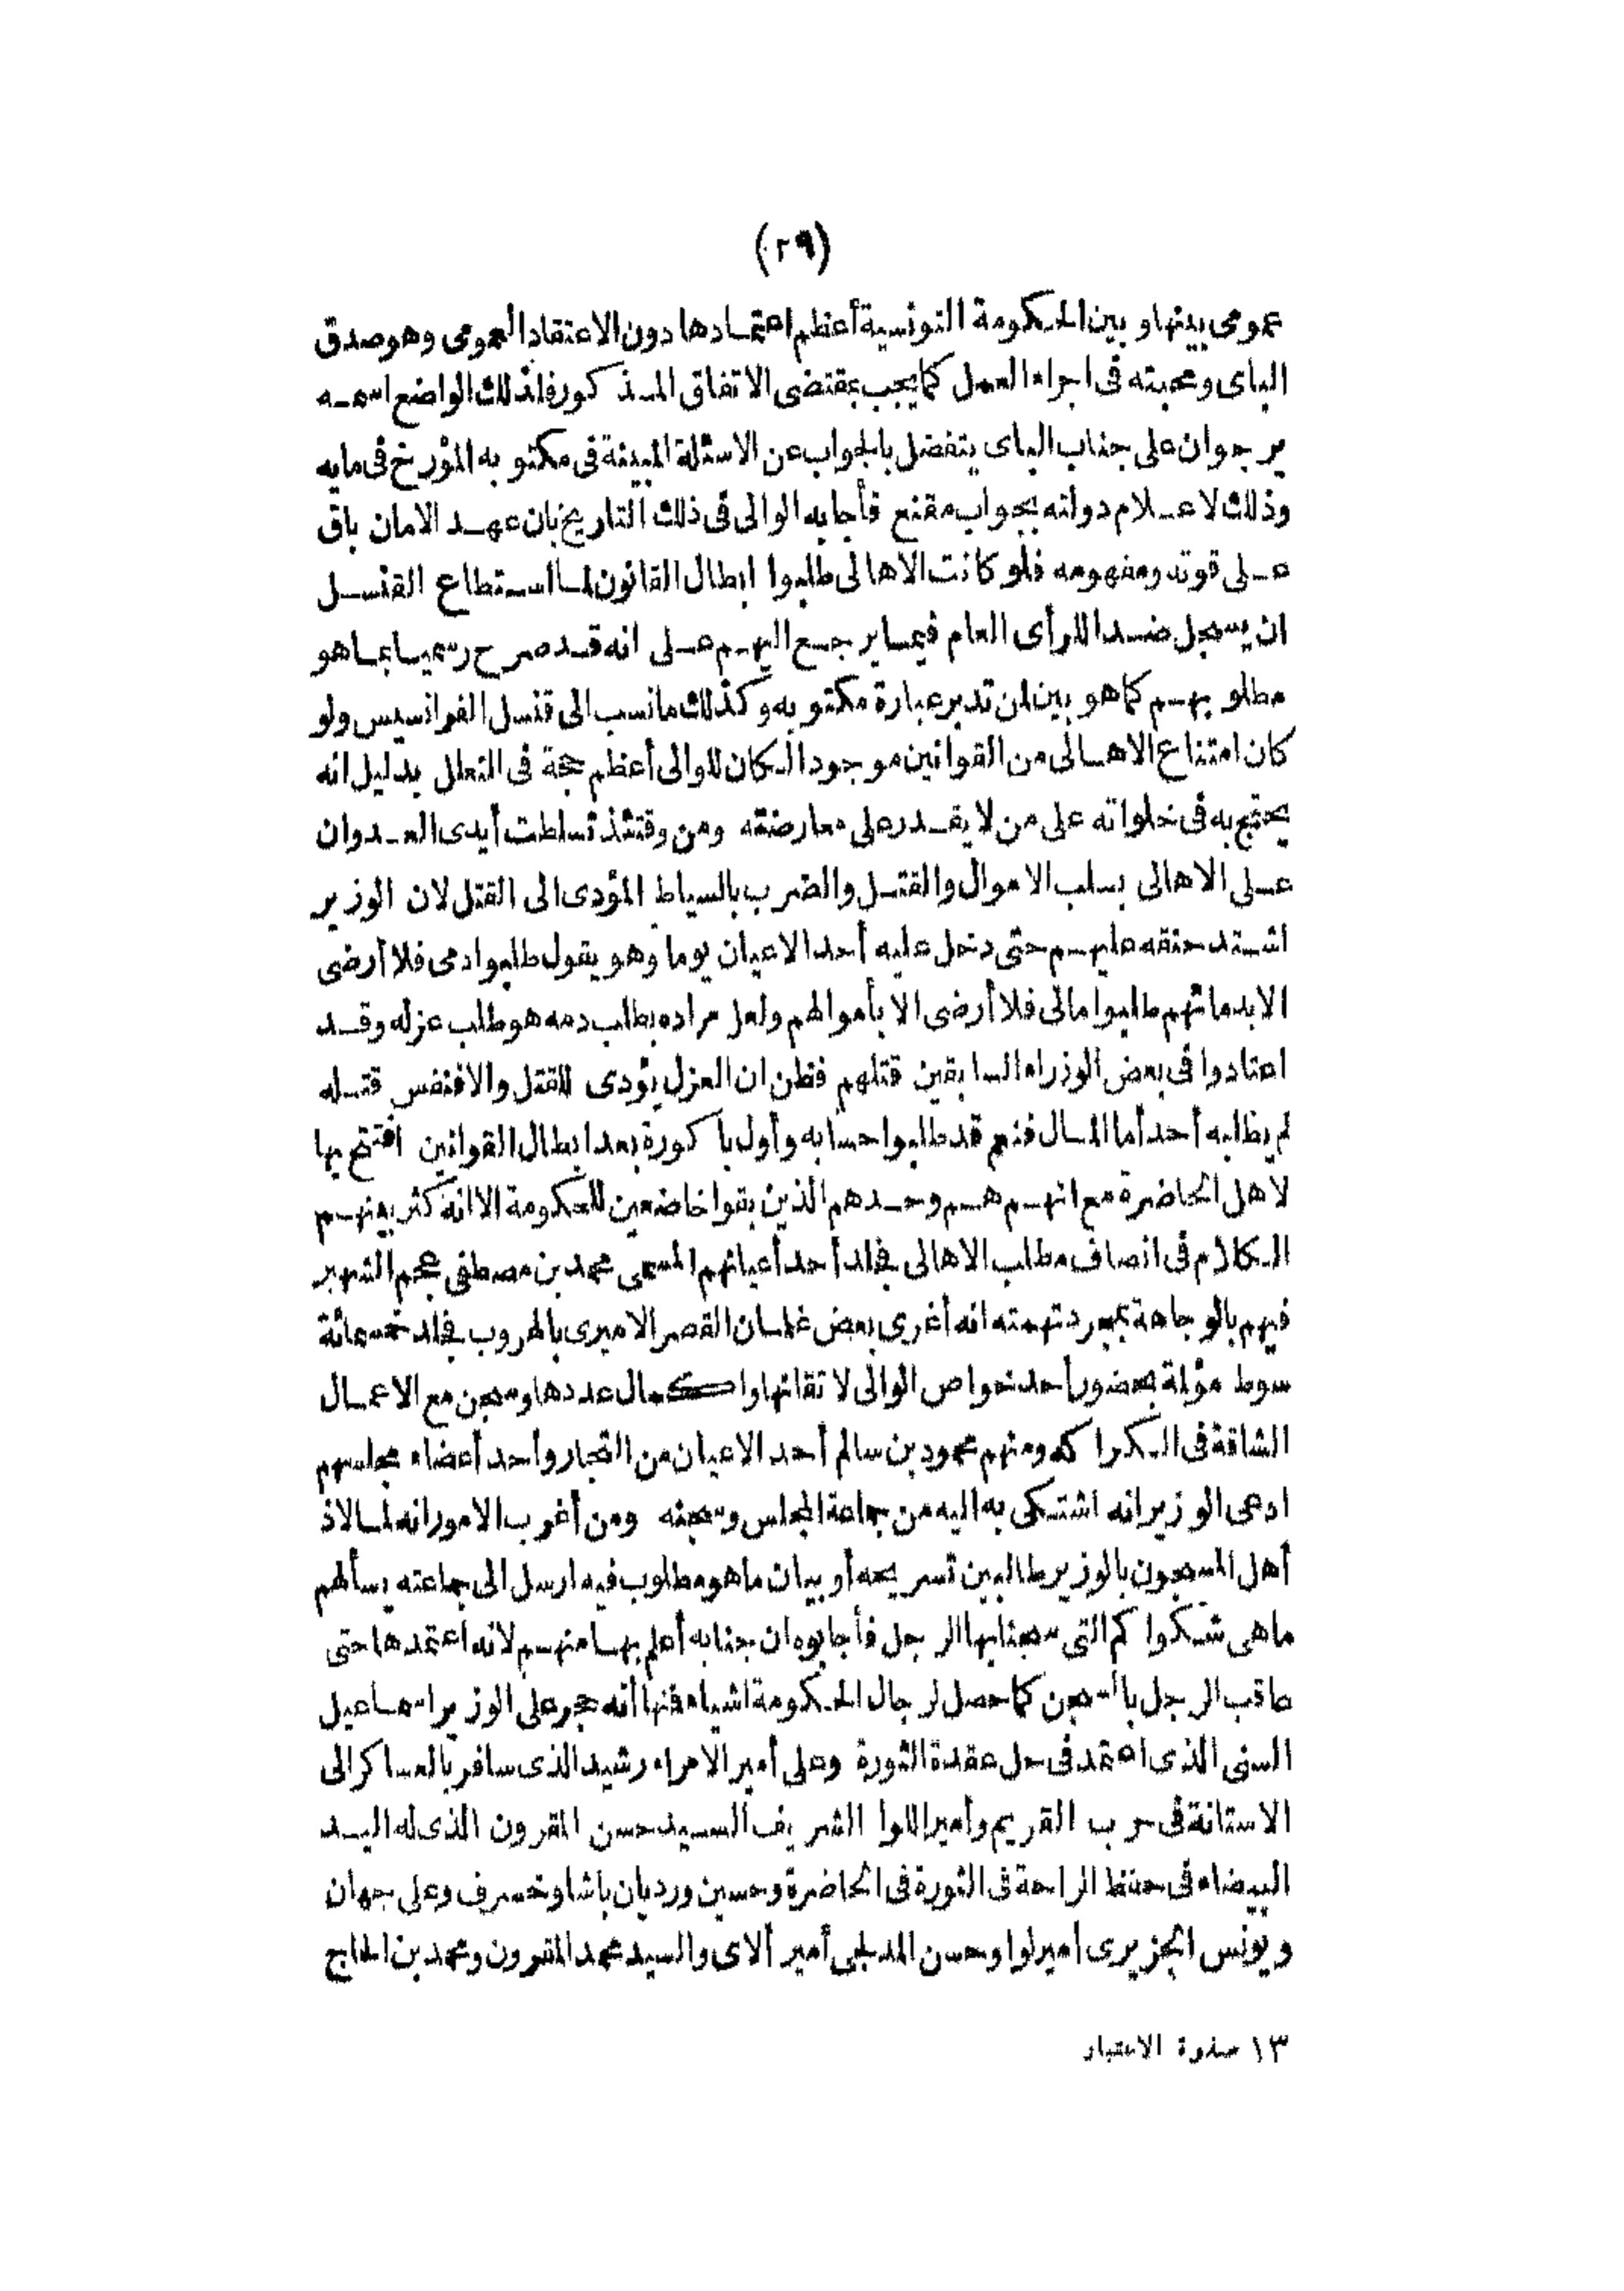 (٢٩)
عمومى بينها وبين الحكومة التونسية أعظم اعتمادها دون الاعتقاد العمومى وهو صدق
الباى ومحبته فى اجراء العمل كما يجب بمقتضى الاتفاق المذكور فلذلك الواضع اسمه
يرجوان على جناب الباى يتفضل بالجواب عن الاسئلة المبينة فى مكتوبه المؤرخ فى مايه
وذلك لاعلام دولته بجواب مقنع فأجابه الوالى فى ذلك التاريخ بان عهد الامان باق
على قوته ومفهومه فلو كانت الاهالى طلبوا ابطال القانون لما استطاع القنسل
ان يسجل ضد الرأى العام فيما يرجع اليهم على انه قد صرح رسميا بما هو
مطلوبهم كما هو بين لمن تدبر عبارة مكتوبه وكذلك ما نسب الى قنسل الفرانسيس ولو
كان امتناع الاهالى من القوانين موجودا لكان للوالى أعظم حجة فى التعلل بدليل انه
يحتج به فى خلواته على من لا يقدر على معارضته ومن وقتئذ تسلطت أيدى العدوان
على الاهالى بسلب الاموال والقتل والضرب بالسياط المؤدى الى القتل لان الوزير
اشتد حنقه عليهم حتى دخل عليه أحد الاعيان يوما وهو يقول طلبوا دمى فلا أرضى
الا بدمائهم طلبوا مالى فلا أرضى الا بأموالهم ولعل مراده بطلب دمه هو طلب عزله وقد
اعتادوا فى بعض الوزراء السابقين قتلهم فظن ان العزل يؤدى للقتل والا فنفس قتله
لم يطلبه أحد أما المال فنعم قد طلبوا حسابه وأول باكورة بعد ابطال القوانين افتتح بها
لاهل الحاضرة مع انهم هم وحدهم الذين بقوا خاضعين للحكومة الا انه كثر بينهم
الكلام فى انصاف مطلب الاهالى فجلد أحد أعيانهم المسمى محمد بن مصطفى عجم الشهير
فيهم بالوجاهة بمجرد تهمته انه أغرى بعض غلمان القصر الاميرى بالهروب فجلد خمسمائة
سوط مؤلمة بحضور أحد خواص الوالى لا تقانها واكمال عددها وسجن مع الاعمال
الشاقة فى الكراكه ومنهم محمود بن سالم أحد الاعيان من التجار وأحد أعضاء مجلسهم
ادعى الوزير انه اشتكى به اليه من جماعة المجلس وسجنه ومن أغرب الامور انه لما لاذ
أهل المسجون بالوزير طالبين تسريحه أو بيان ما هو مطلوب فيه ارسل الى جماعته يسألهم
ما هى شكواكم التى سجنا بها الرجل فأجابوه ان جنابه أعلم بها منهم لانه اعتمدها حتى
عاقب الرجل بالسجن كما حصل لرجال الحكومة اشياء فمنها أنه حجر على الوزير اسماعيل
السنى الذى اعتمد فى حل عقدة الثورة وعلى أمير الامراء رشيد الذى سافر بالعساكر الى
الاستانة فى حرب القريم وأمير اللوا الشريف السيد حسن المقرون الذى له اليد
البيضاء فى حفظ الراحة فى الثورة فى الحاضرة وحسين ورديان باشا وخسرف وعلى جهان
ويونس الجزيرى أمير لوا وحسن المدلجى أمير ألاى والسيد محمد المقرون ومحمد بن الحاج
١٣ صفوة الاعتبار